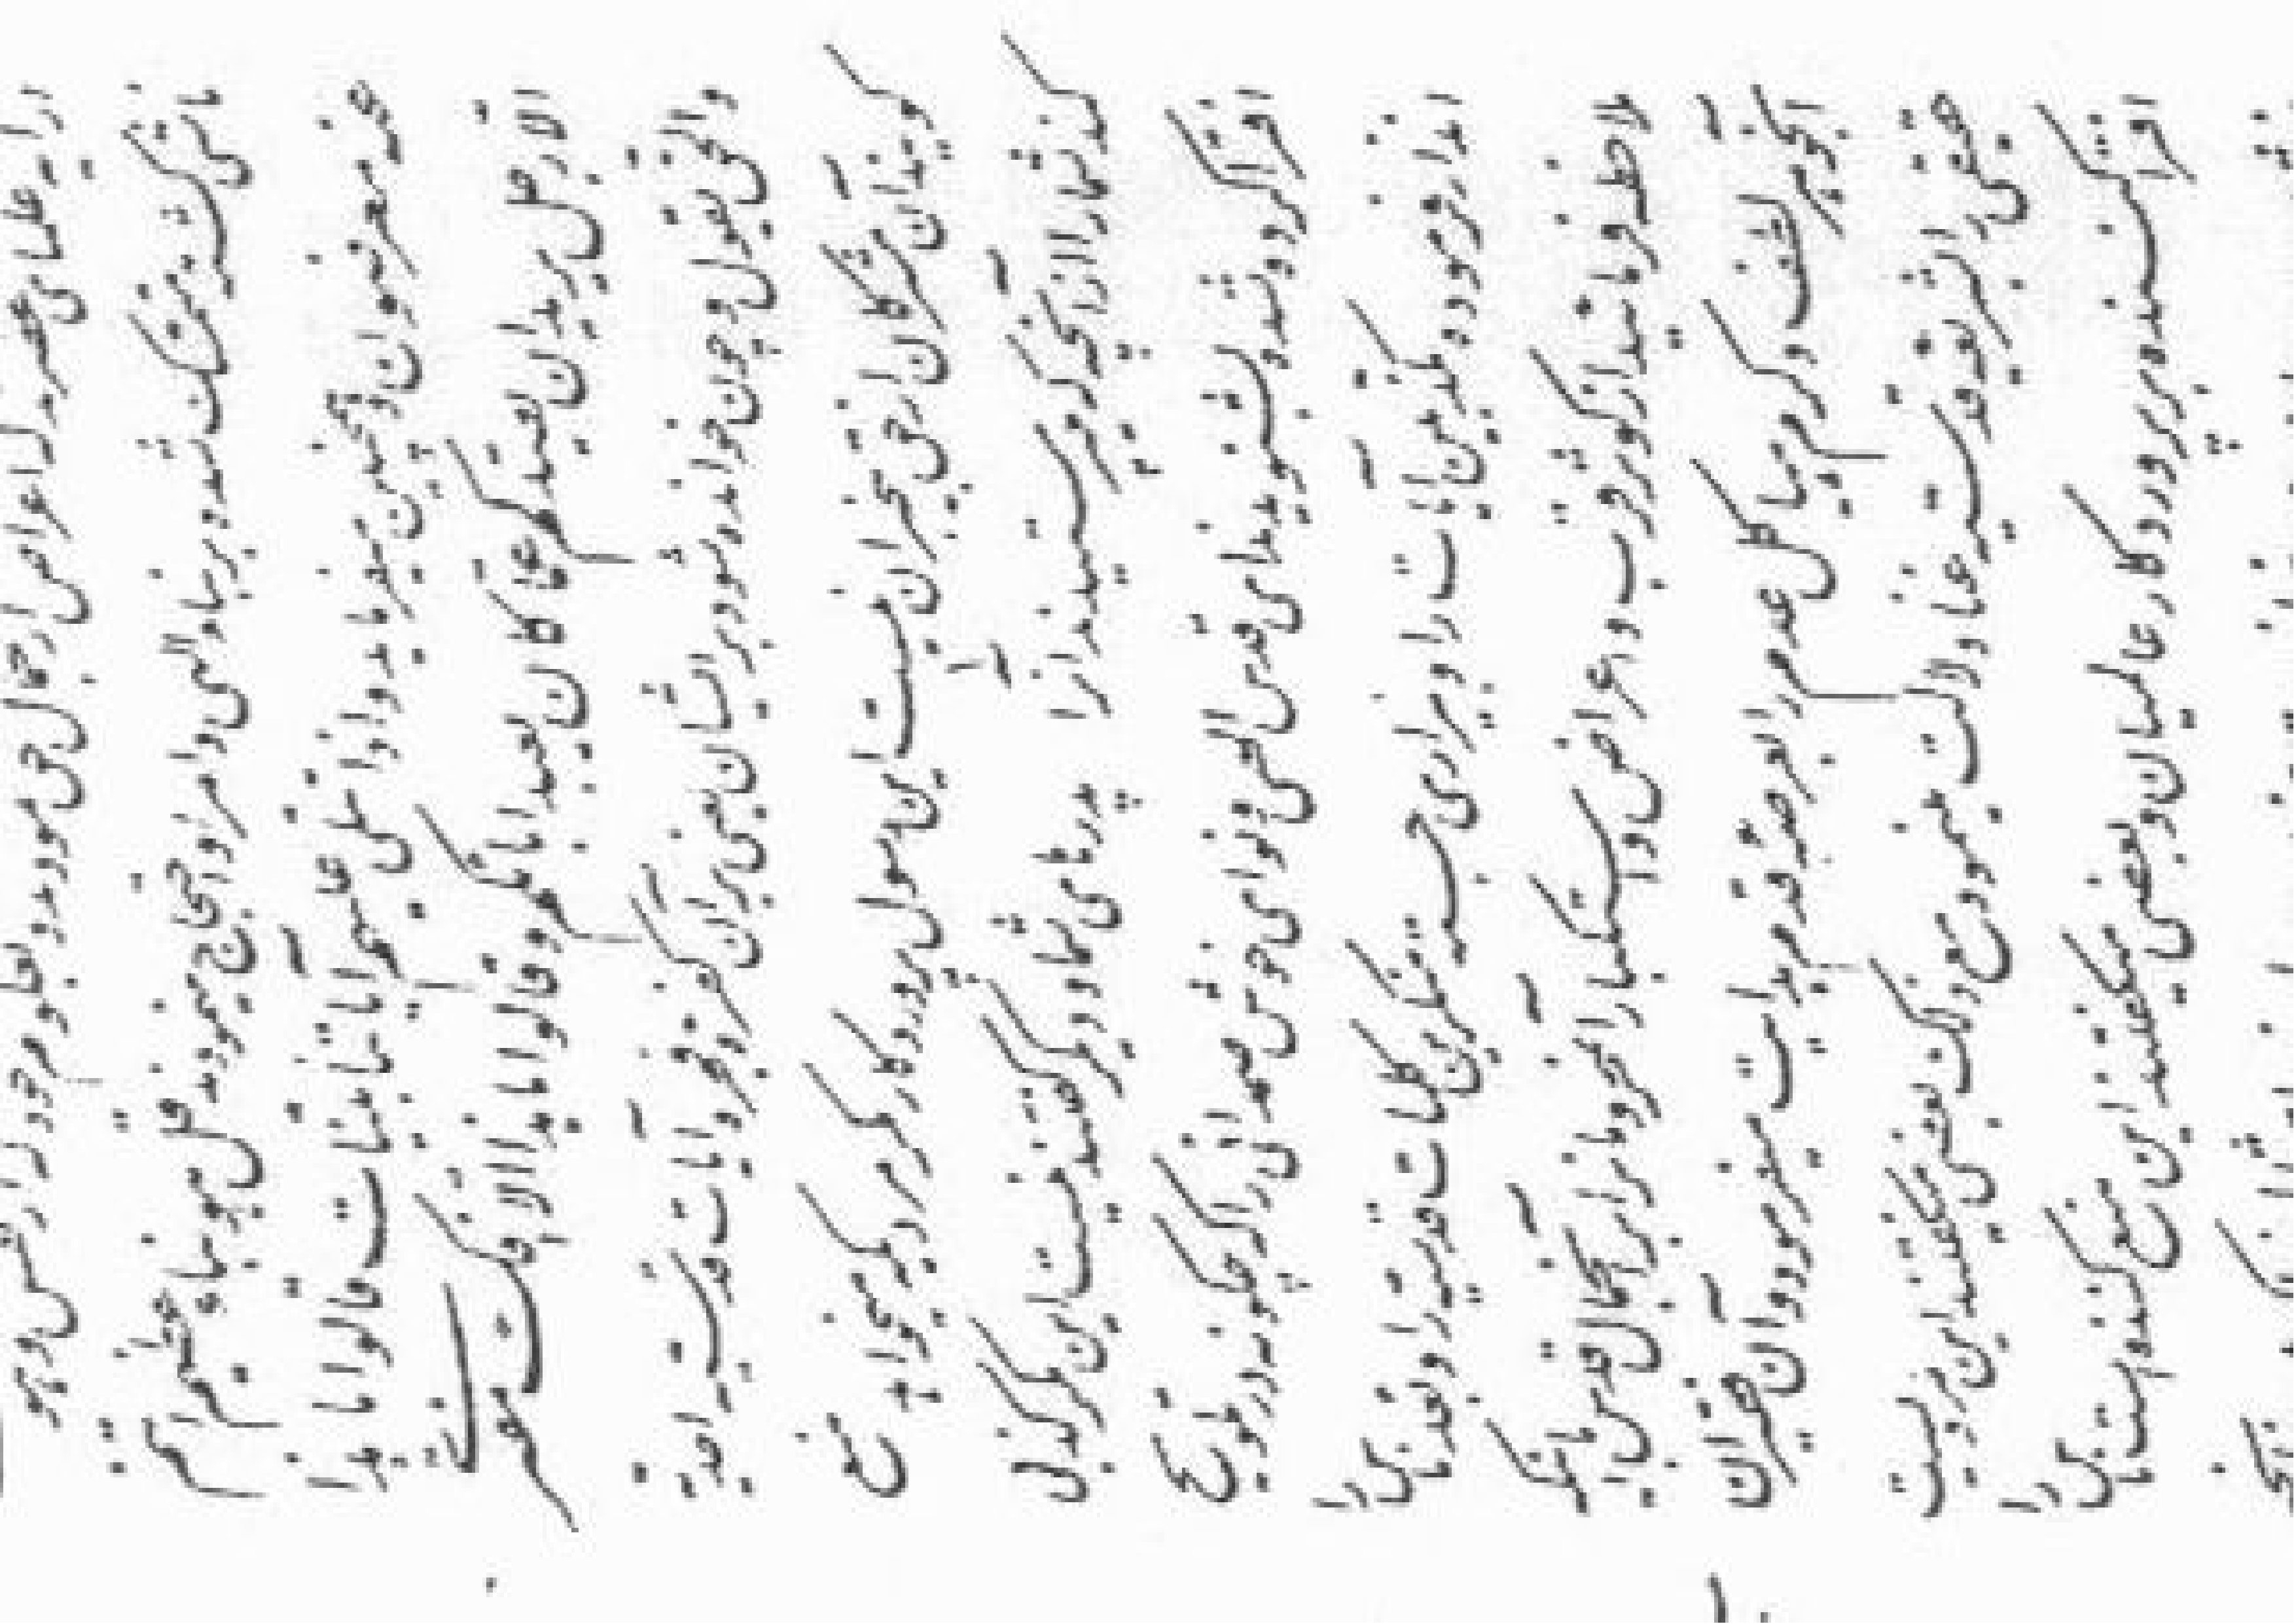 را به علمای عصر اعراض از جمال حق نمودند و بعلوم خود از شمس
متمسک شده و بر نباء الهی و امر او احتجاج مینمودند قل هو نباء عظیم انتم
عنه معرضون و همچنین میفرماید و اذا تتلی علیهم آیاتنا بینات قالوا ما هذا
الا رجل یرید ان یصدکم عما کان یعبد اباؤکم و قالوا ما هذا الا افک مفتری
چون خوانده میشود بر ایشان یعنی بران کفره و فجره آیات قدسیه احدیه
گویند آن مشرکان از حق بیخبران نیست این رسول پروردگار مگر مردیکه میخواهد منع
کند شما را از آنچه که میپرستیدند آنرا پدرهای شما و دیگر گفتند نیست این مگر کذبی
افترا کرده شده بشنوید ندای قدس الهی و نوای خوش صمدانی را که چگونه در تلویح
انذار فرموده مکذبین آیات را و بیزاری جسته منکرین کلمات قدسیه را و بعد ناس را
ملاحظه فرمائید از کوثر قرب و اعراض و استکبار آنمحرومانرا بر آنجمال قدس با اینکه
آنجوهر لطف و کرم هیاکل عدم را بعرصه قدم هدایت میفرمود و آن فقیران
حقیقی را بشریعه قدسیه غنا دلالت مینمود مع ذلک بعضی میگفتند این مردیست
افترا کننده بر پروردگار عالمیان و بعضی میگفتند این منع کننده است ناس را